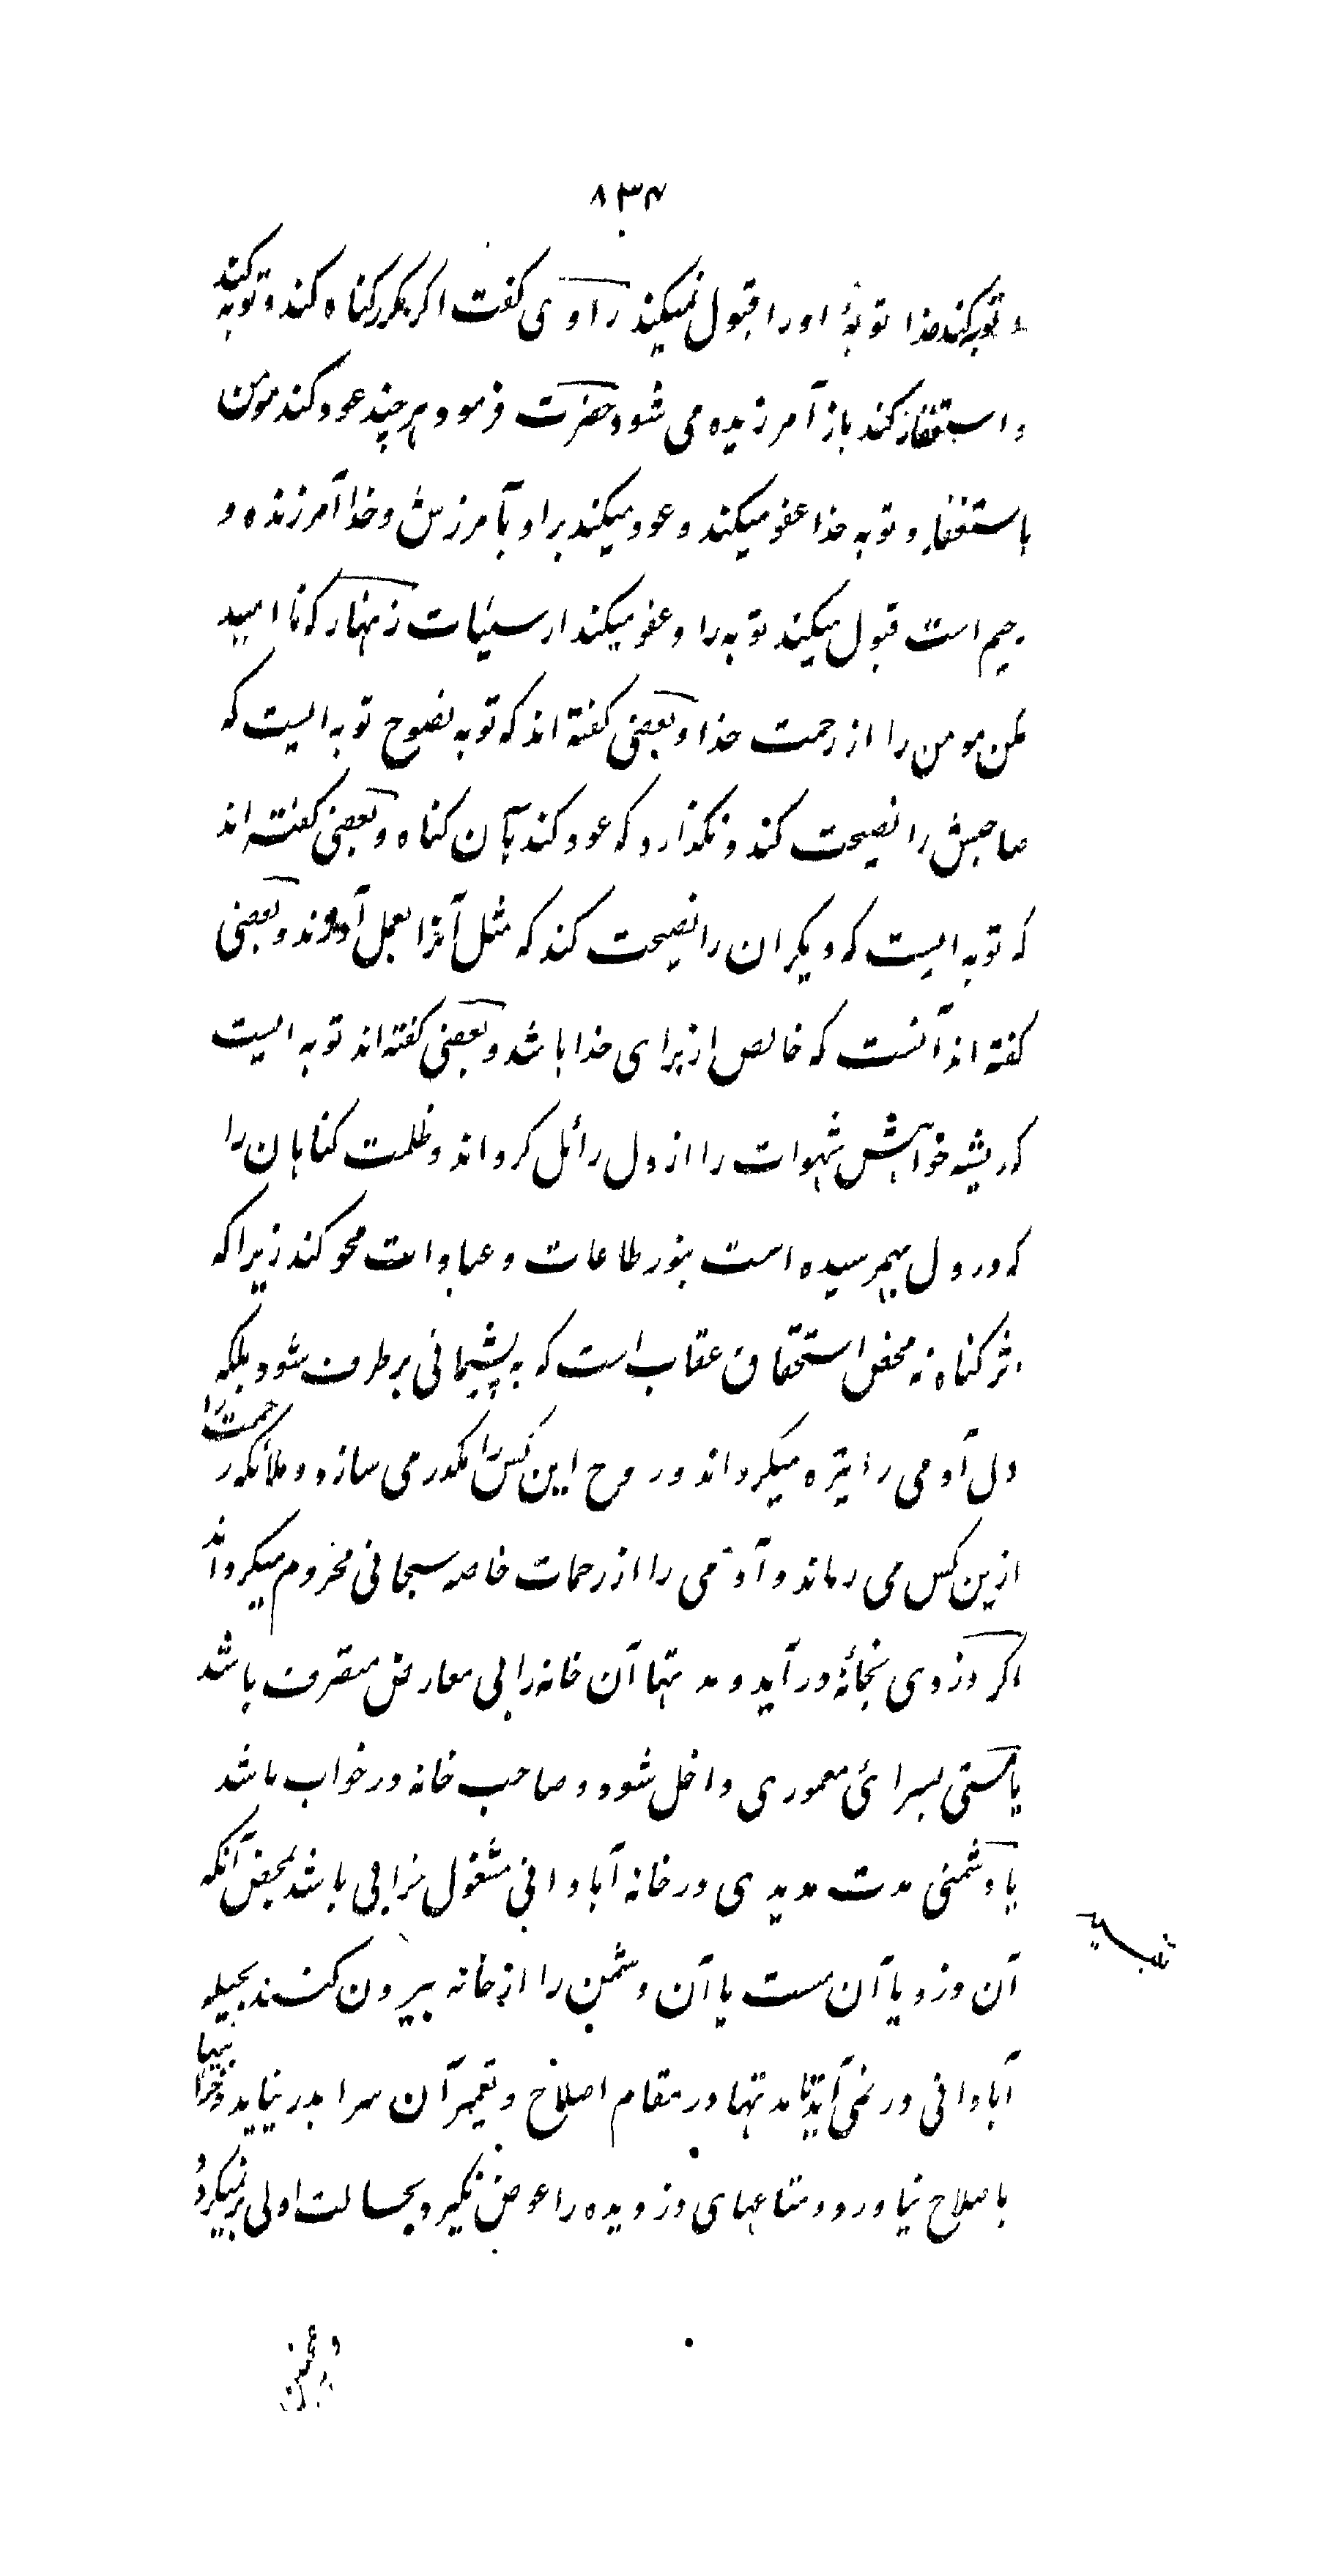 ۸۳۴
و توبه کند خدا توبهٔ او را قبول نمیکند راوی گفت اگر مکرر کناه کند و توبه کند
و استغفار کند باز آمرزیده می شود حضرت فرمود هر چند عود کند مومن
باستغفار و توبه خدا عفو میکند و عود میکند بر او بآمرزش و خدا آمرزنده و
رحیم است قبول میکند توبه را و عفو میکند از سیئات زنهار که نا امید
مکن مومن را از رحمت خدا و بعضی کفته اند که توبه نصوح توبه ایست که
صاحبش را نصیحت کند و نکذارد که عود کند بآن کناه و بعضی کفته اند
که توبه ایست که دیکران را نصیحت کند که مثل آنرا بعمل آورند و بعضی
کفته اند آنست که خالص از برای خدا باشد و بعضی کفته اند توبه ایست
که ریشه خواهش شهوات را از دل زائل کرداند و ظلمت کناهان را
که در دل بهم رسیده است بنور طاعات و عبادات محو کند زیرا که
اثر کناه نه محض استحقاق عقاب است که به پشیمانی برطرف شود بلکه
دل آدمی را تیره میکرداند و روح این کس را مکدر می سازد و ملائکه رحمت را
ازین کس می رماند و آدمی را از رحمات خاصه سبحانی محروم میکرداند
اکر دزدی بخانهٔ درآید و مدتها آن خانه را بی معارض متصرف باشد
یا مستی بسرائی معموری داخل شود و صاحب خانه در خواب باشد
یا دشمنی مدت مدیدی در خانه آبادانی مشغول خرابی باشد بمحض آنکه
آن دزد یا آن مست یا آن دشمن را از خانه بیرون کنند بحیله
آبادانی در نمی آید تا مدتها در مقام اصلاح و تعمیر آن سرا بدر نیاید و خرابیها
باصلاح نیاورد و متاعهای دزدیده را عوض نکیرد بحالت اولی بر نمیکردد